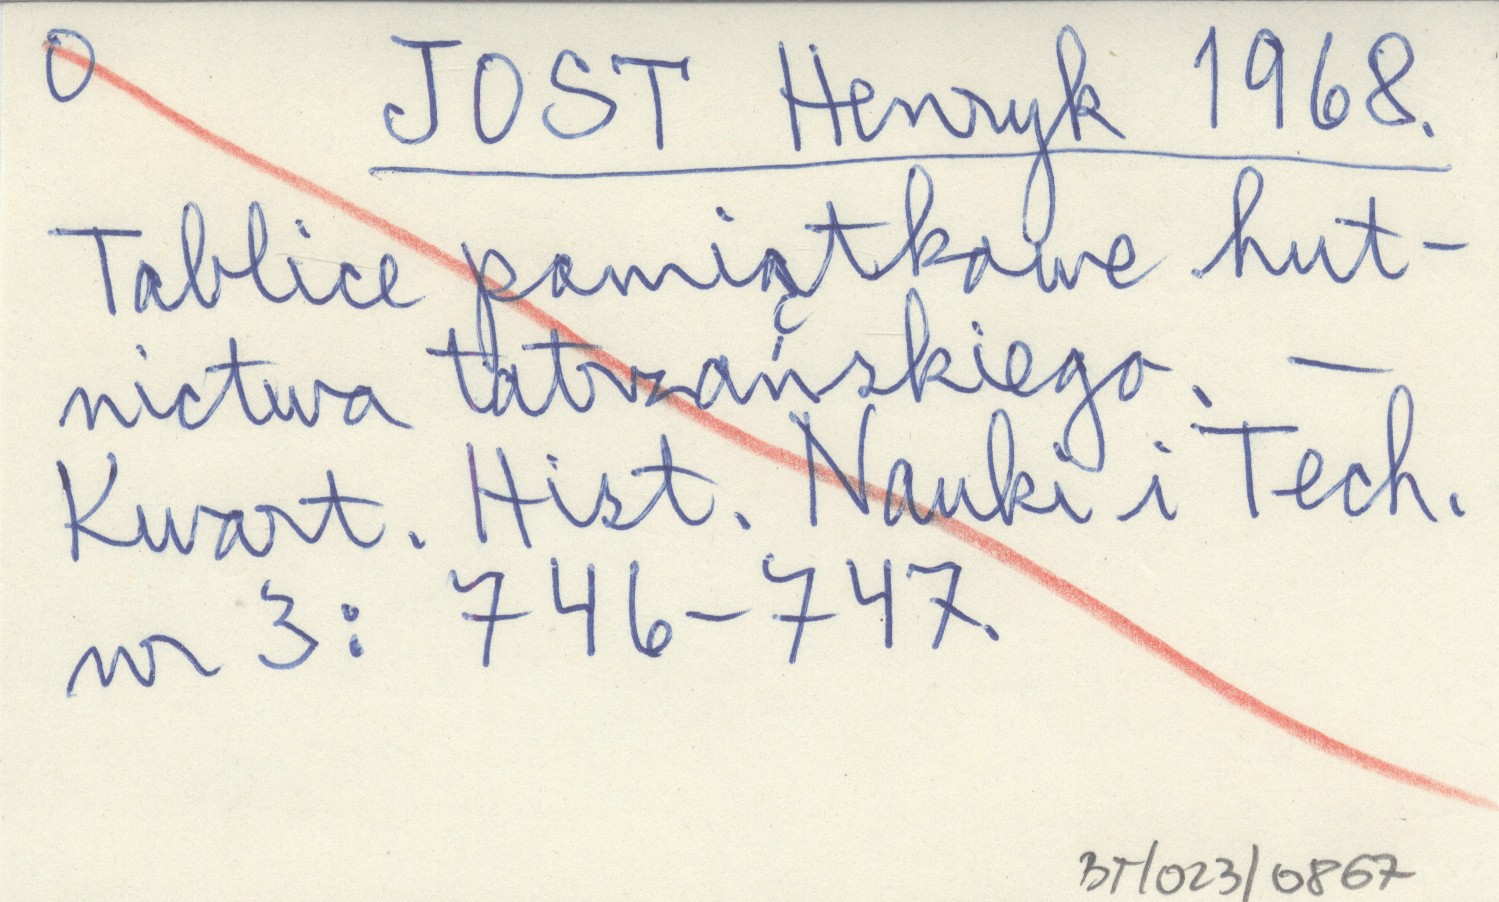 0 JOST Henryk 1968.
Tablice pamiątkowe hut-
nictwa tatrzańskiego. —
Kwart. Hist. Nauki i Tech.
nr 3: 746-747.
BT/023/0867